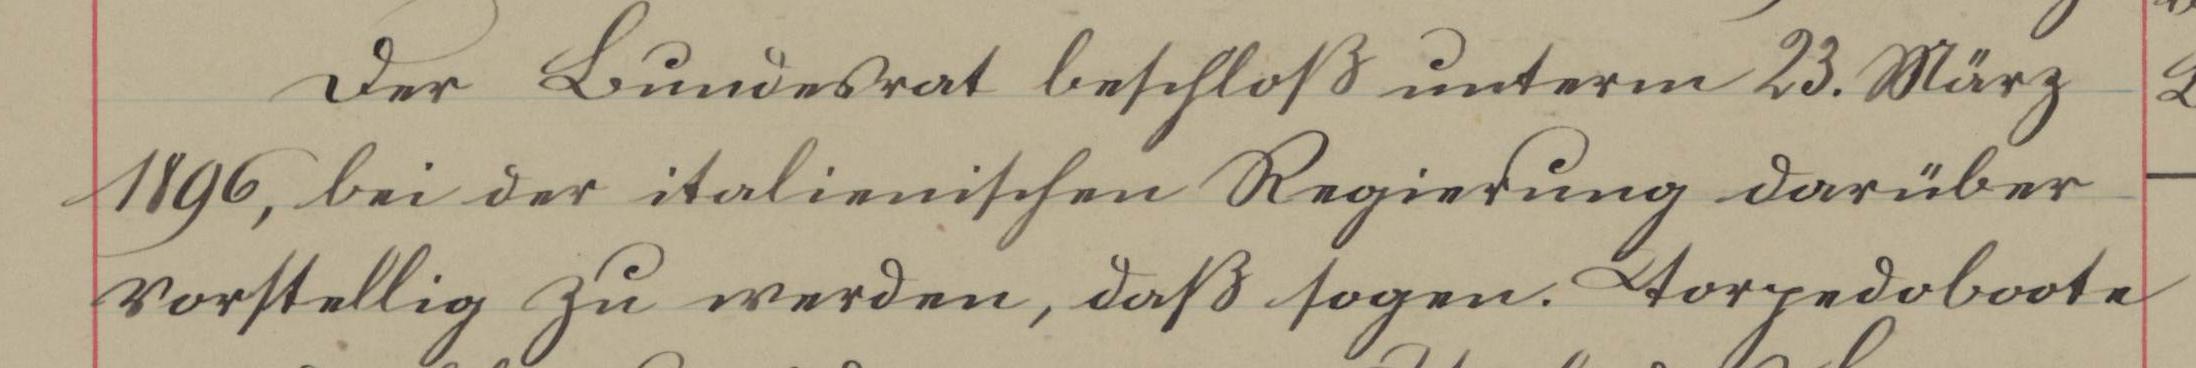 Der Bundesrat beschloß unterm 23. März
1896, bei der italienischen Regierung darüber
vorstellig zu werden, daß sogen. Torpedoboote